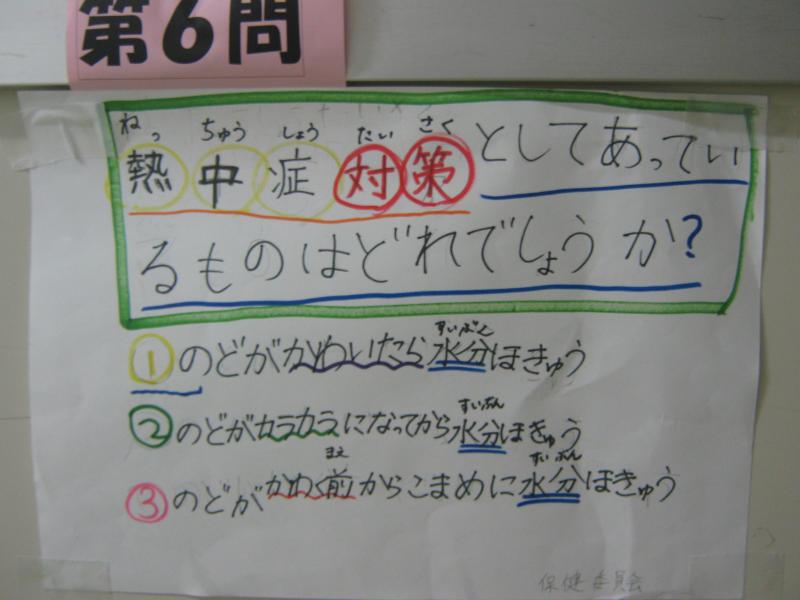 第6問
ねっ ちゅう しょう たい さく
熱中症対策としてあってい
るものはどれでしょうか?
①のどがかわいたら水分ほきゅう
すいぶん
②のどがカラカラになってから水分ほきゅう
すいぶん
③のどがかわく前からこまめに水分ほきゅう
まえ すいぶん
保健委員会